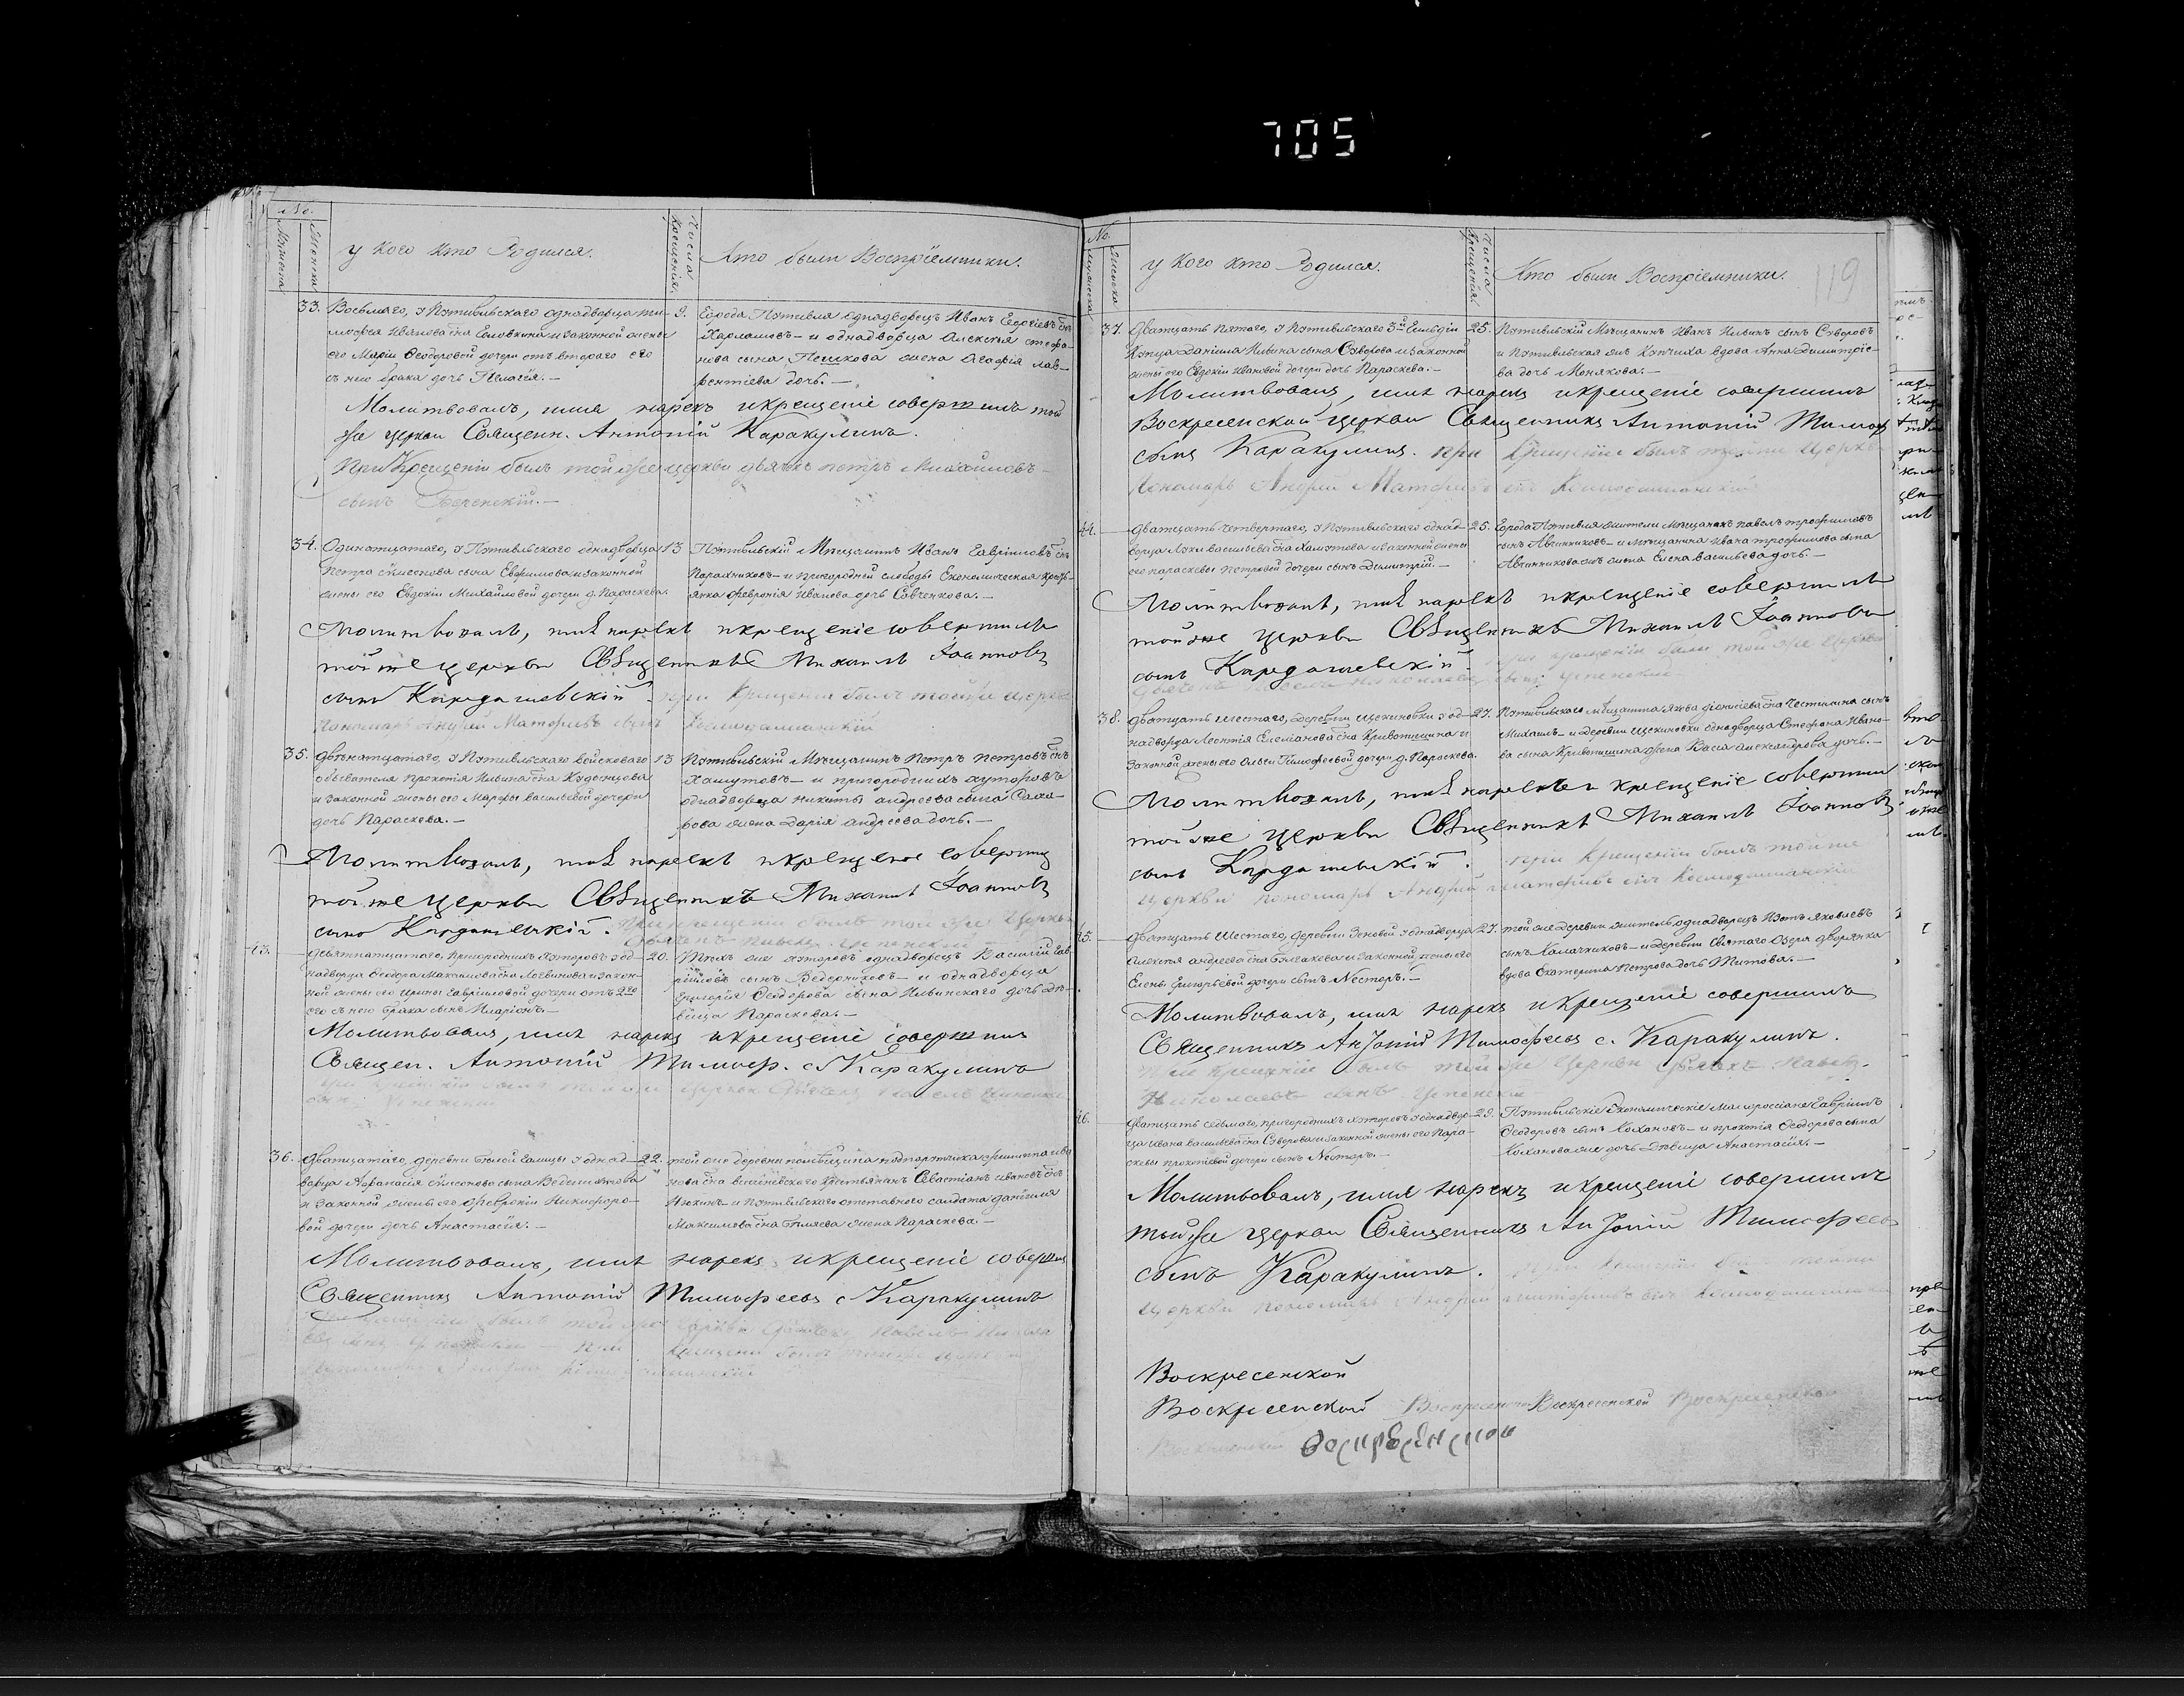 705
No.
Мужеска
Женска
у кого кто Родился.
Числа Крещенія.
Кто были Воспріемники.
33. Восьмаго, у Путивльскаго однадворца Ти-
мофея Иванова сна Еловкина и законной жены
его Маріи Ѳеодоровой дочери отъ втораго его
съ нею брака дочь Пелагія.—
9.
Города Путивля однадворецъ Иванъ Сергіевъ снъ
Харламовъ— и однадворца Алексѣя стефа-
нова сына Пешкова жена Агафія лав-
рентіева дочь.—
Молитвовалъ, имя нарекъ и крещеніе совершилъ той
же церкви Священн. Антоній Каракулинъ.
При Крещеніи былъ той же церкви дьячокъ петръ Михайловъ
сынъ
34. Одинатцатаго, у Путивльскаго однадворца
Петра Симеонова сына Евфимова и законной
жены его Евдокіи Михайловой дочери д. Параскева.
13
Путивльскій Мѣщанинъ Иванъ Гавріиловъ снъ
и пригородней слободы Економическая кресть-
янка Февронія Иванова дочь Савченкова.—
Молитвовалъ, имя нарекъ и крещеніе совершилъ
той же церкви Священникъ Михаилъ Іоанновъ
сынъ Кардашевскій.
при Крещеніи былъ тойже церкви
пономарь Андрей Матфіевъ сынъ Космодаміанскій
35. Двѣнатцатаго, у Путивльскаго войсковаго
обывателя Прокопія Ильина сна Кудонцова
и законной жены его Марфы Васильевой дочери
дочь Параскева.—
13
Путивльскій Мѣщанинъ Петръ Петровъ снъ
Хашутовъ— и пригородныхъ хуторовъ
однадворца Никиты Андреева сына Сама-
рова жена Дарія Андреева дочь.—
Молитвовалъ, имя нарекъ и крещеніе совершилъ
той же церкви Священникъ Михаилъ Іоанновъ
сынъ Кардашевскій.
При крещеніи былъ той же Церкви
дьячекъ Павелъ Успенскій
43. Девятнатцатаго, пригородныхъ хуторовъ у од-
надворца Ѳеодора Максимова сна Логвинова и закон-
ной жены его Ирины Гавріиловой дочери отъ 2го
его съ нею брака сынъ Иларіонъ.—
20.
Тѣхъ же хуторовъ однадворецъ Василій Гав-
ріиловъ сынъ Ведерниковъ— и однадворца
Григорія Ѳеодорова сына Нивинскаго дочь дѣ-
вица Параскева.—
Молитвовалъ, имя нарекъ и крещеніе совершилъ
Священ. Антоній Тимоф. с Каракулинъ
36. Дватцатаго, деревни Бѣлой Галицы у однад-
ворца Аѳанасія Симеонова сына
и законной жены его Февроніи Никифоро-
вой дочери дочь Анастасія.—
22.
той же деревни помѣщика подпоручика Филиппа Ива
нова сна крестьянинъ Севастіанъ Ивановъ снъ
и Путивльскаго отставного салдата Даніила
Максимова сна Бѣляева жена Параскева.—
Молитвовалъ, имя нарекъ и крещеніе соверши
Священникъ Антоній Тимофеевъ с Каракулинъ
No.
Мужеска
Женска
у кого кто Родился.
Числа Крещенія.
Кто были Воспріемники.
119
37. Дватцать пятаго, у Путивльскаго 3й Гильдіи
Купца Даніила Ильина сына Суворова и законной
жены его Евдокіи Ивановой дочери дочь Параскева.—
25.
Путивльскій Мѣщанинъ Иванъ Ильинъ сынъ Суворовъ
и Путивльская жъ Купчиха вдова Анна Димитріе-
ва дочь Монякова.—
Молитвовалъ, имя нарекъ и крещеніе совершилъ
Воскресенской церкви Священникъ Антоній Тимоф
сынъ Каракулинъ. при Крещеніи былъ тойже Церкви
Пономарь Андрей Матфіевъ снъ Космодаміанскій
44. Дватцать четвертаго, у Путивльскаго однад-
ворца Луки Васильева сна Халутова и законной жены
его Параскевы Петровой дочери сынъ Димитрій.—
25.
Города Путивля жители Мѣщанинъ Павелъ Трофимовъ
сынъ Авчинниковъ— и мѣщанина Ивана Трофимова сына
Авчинникова жъ жена Елена Васильева дочь.—
Молитвовалъ, имя нарекъ и крещеніе совершилъ
той же Церкви Священникъ Михаилъ Іоанновъ
сынъ Кардашевскій.
при крещеніи былъ той же Церкви
дьячекъ Павелъ Николаевъ сынъ Успенскій
38. Дватцать шестаго, деревни Щекиновки у од-
надворца Леонтія Емеліанова сна Кривошина и
законной жены его Ольги Тимофеевой дочери д. Параскева.
27.
Путивльскаго мѣщанина Якова Діонисіева сна Честилина сынъ
Михаилъ— и деревни Щекиновки однадворца Стефана Ивано-
ва сына Кривошина жена Васса Александрова дочь.—
Молитвовалъ, имя нарекъ и крещеніе совершилъ
той же Церкви Священникъ Михаилъ Іоанновъ
сынъ Кардашевскій.
при Крещеніи былъ тойже
церкви пономарь Андрей Матфіевъ снъ Космодаміанскій
45. Дватцать шестаго, деревни Зеновой у однадворца
Алексѣя Андреева сна и законной жены его
Елены Григорьевой дочери сынъ Несторъ.—
27.
той же деревни житель однадворецъ Изотъ Яковлевъ
сынъ Калачниковъ— и деревни Святаго Озера дворянка
вдова Екатерина Петрова дочь Титова.—
Молитвовалъ, имя нарекъ и крещеніе совершилъ
Священникъ Антоній Тимофеевъ с. Каракулинъ.
при крещеніи былъ той же Церкви дьячекъ Павелъ
Николаевъ сынъ Успенскій
46. Дватцать седьмаго, пригородныхъ хуторовъ у однадвор-
ца Ивана Васильева сна Суворова и законной жены его Пара-
скевы Прокопіевой дочери сынъ Несторъ.—
29.
Путивльскіе Економическіе Малороссіяне Гавріилъ
Ѳеодоровъ сынъ Кохановъ— и Прокопія Ѳеодорова сына
Коханова же дочь Дѣвица Анастасія.—
Молитвовалъ, имя нарекъ и крещеніе совершилъ
той же церкви Священникъ Антоній Тимофеевъ
сынъ Каракулинъ.
церкви пономарь Андрей Матфіевъ снъ Космодаміанскій
Воскресенской
Воскресенской Воскресенской Воскресенской Воскресенской
Воскресенской Воскресенской